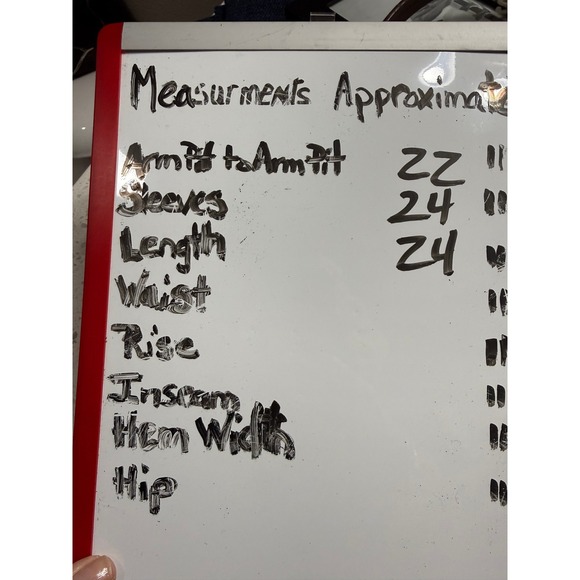 Measurments Approximate
ArmPit to ArmPit 22 "
Sleeves 24 "
Length 24 "
Waist "
Rise "
Inseam "
Hem Width "
Hip "